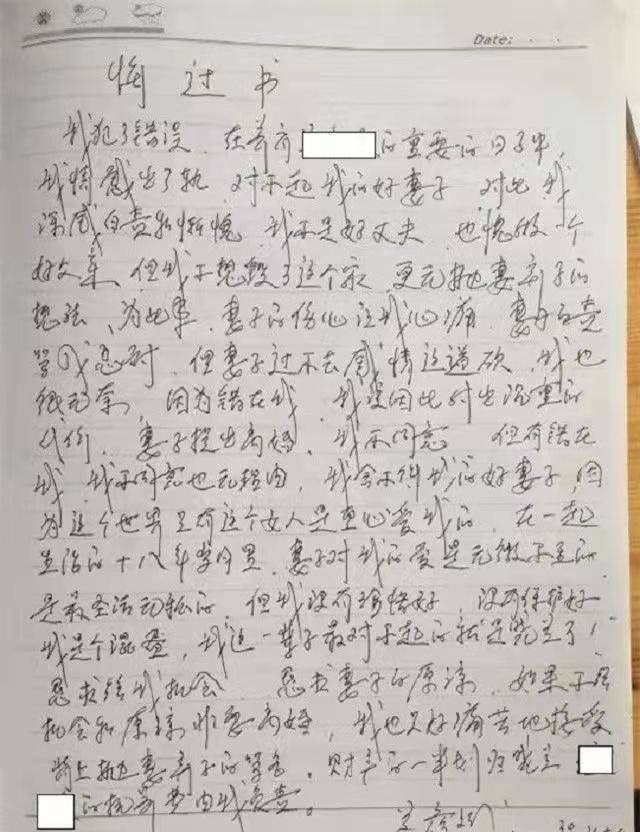 Date:
悔过书
我犯了错误,在养育的重要的日子里,
我情感出了轨,对不起我的好妻子,对此我
深感自责和惭愧,我不是好丈夫,也愧做一个
好父亲,但我不想毁了这个家,更无抛妻弃子的
想法,为此事,妻子的伤心让我心痛,妻子的责
骂我忍耐,但妻子过不去感情这道砍,我也
很无奈,因为错在我,我要因此付出沉重的
代价,妻子提出离婚,我不同意,但有错在
我,我不同意也无理由,我舍不得我的好妻子,因
为这个世界只有这个女人是真心爱我的,在一起
生活的十八年岁月里,妻子对我的爱是无微不至的
是最圣洁无私的,但我没有珍惜好,没有保护好
我是个混蛋,我这一辈子最对不起的就是
恳求给我机会,恳求妻子的原谅,如果不给
机会和原谅非要离婚,我也只好痛苦地接受
背上抛妻弃子的骂名,财产的一半划归
的抚养费由我负责。